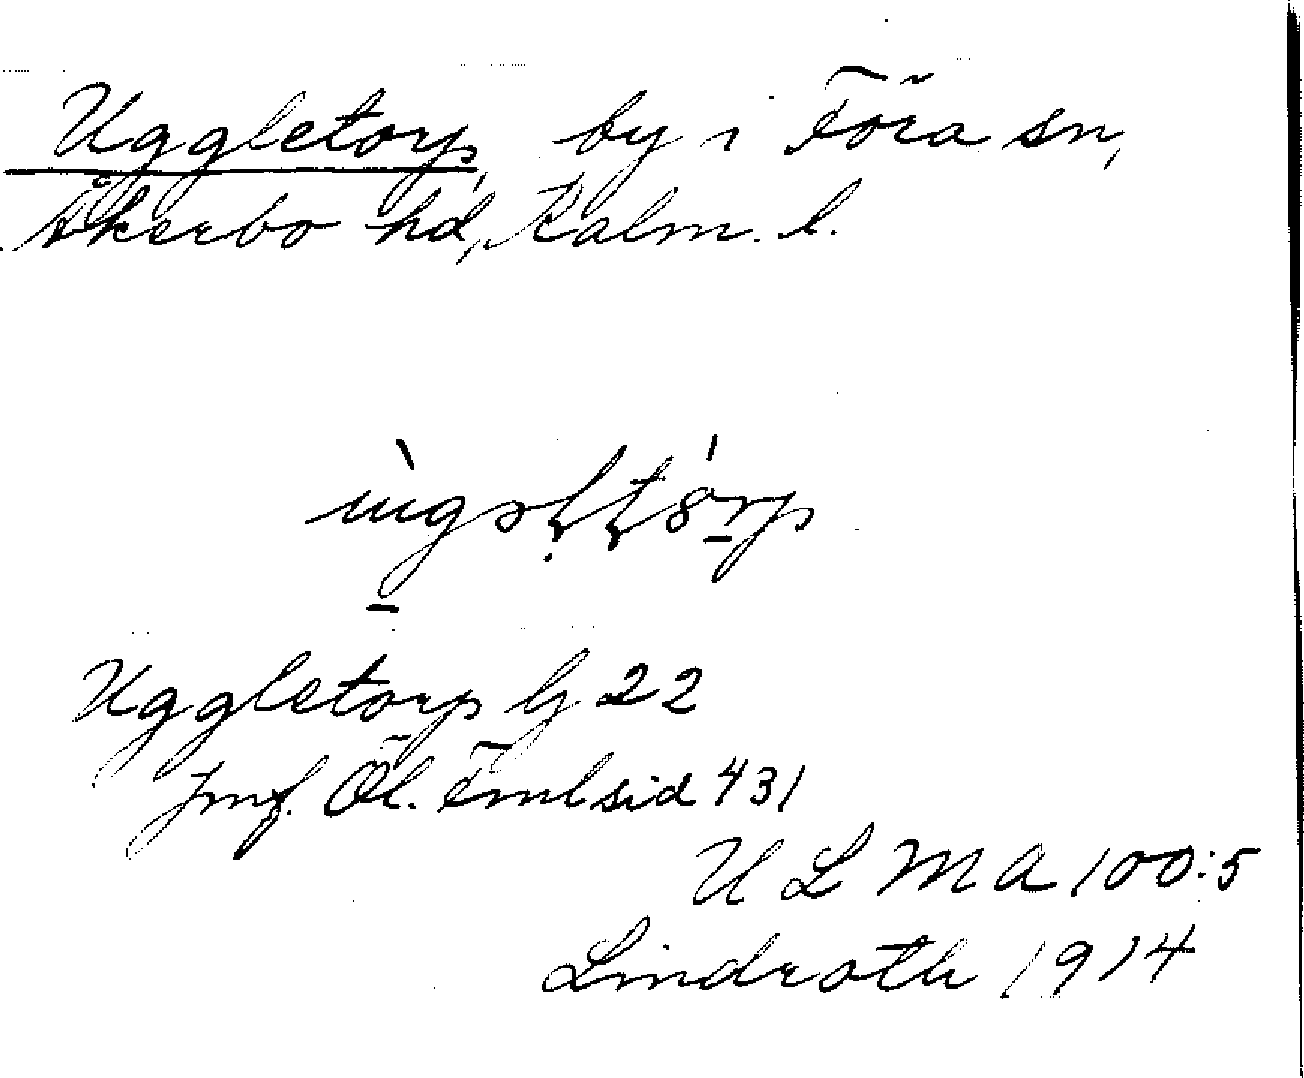 Uggletorp, by i Föra sn,
Åkerbo hd, Kalm. l.
Uggletorp G 22
Jmf. Öl. Fmlsid 431
U L M A 100:5
Lindroth 1914